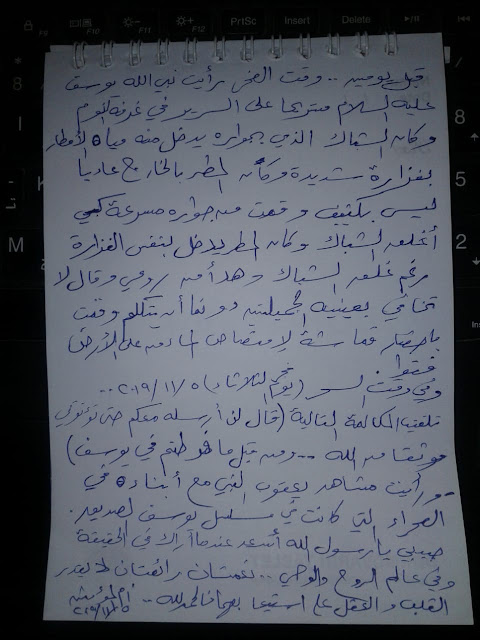 قبل يومين .. وقت الضحى رأيت نبي الله يوسف
عليه السلام مستريحا على السرير في غرفة النوم
وكان الشباك الذي بجواره يدخل منه مياه الأمطار
بغزارة شديدة وكأن المطر بالخارج عاديا
ليس بكثيف وقمت من جواره مسرعة كي
أغلق الشباك وكان المطر يدخل بنفس الغزارة
رغم غلق الشباك وهدأ من روعي وقال لا
تخافي بعينيه الجميلتين دونما أن يتكلم وقمت
باحضار قماشة لامتصاص الماء من على الأرض
فقط .
وفي وقت السحر (يوم الثلاثاء) ٢٠١٩/١١/٥ ..
تلقيت المكالمة التالية (قال لن أرسله معكم حتى تؤتوني
موثقا من الله .. ومن قبل ما فرطتم في يوسف)
ورأيت مشاهد يعقوب النبي مع أبناءه في
الصحراء التي كانت في مسلسل يوسف الصديق .
حبيبي يا رسول الله أسعد عندما أراك في الحقيقة
وفي عالم الروح والوحي .. نعمتان رائعتان لا يقدر
القلب والعقل على استيعابهما فالحمد لله ..